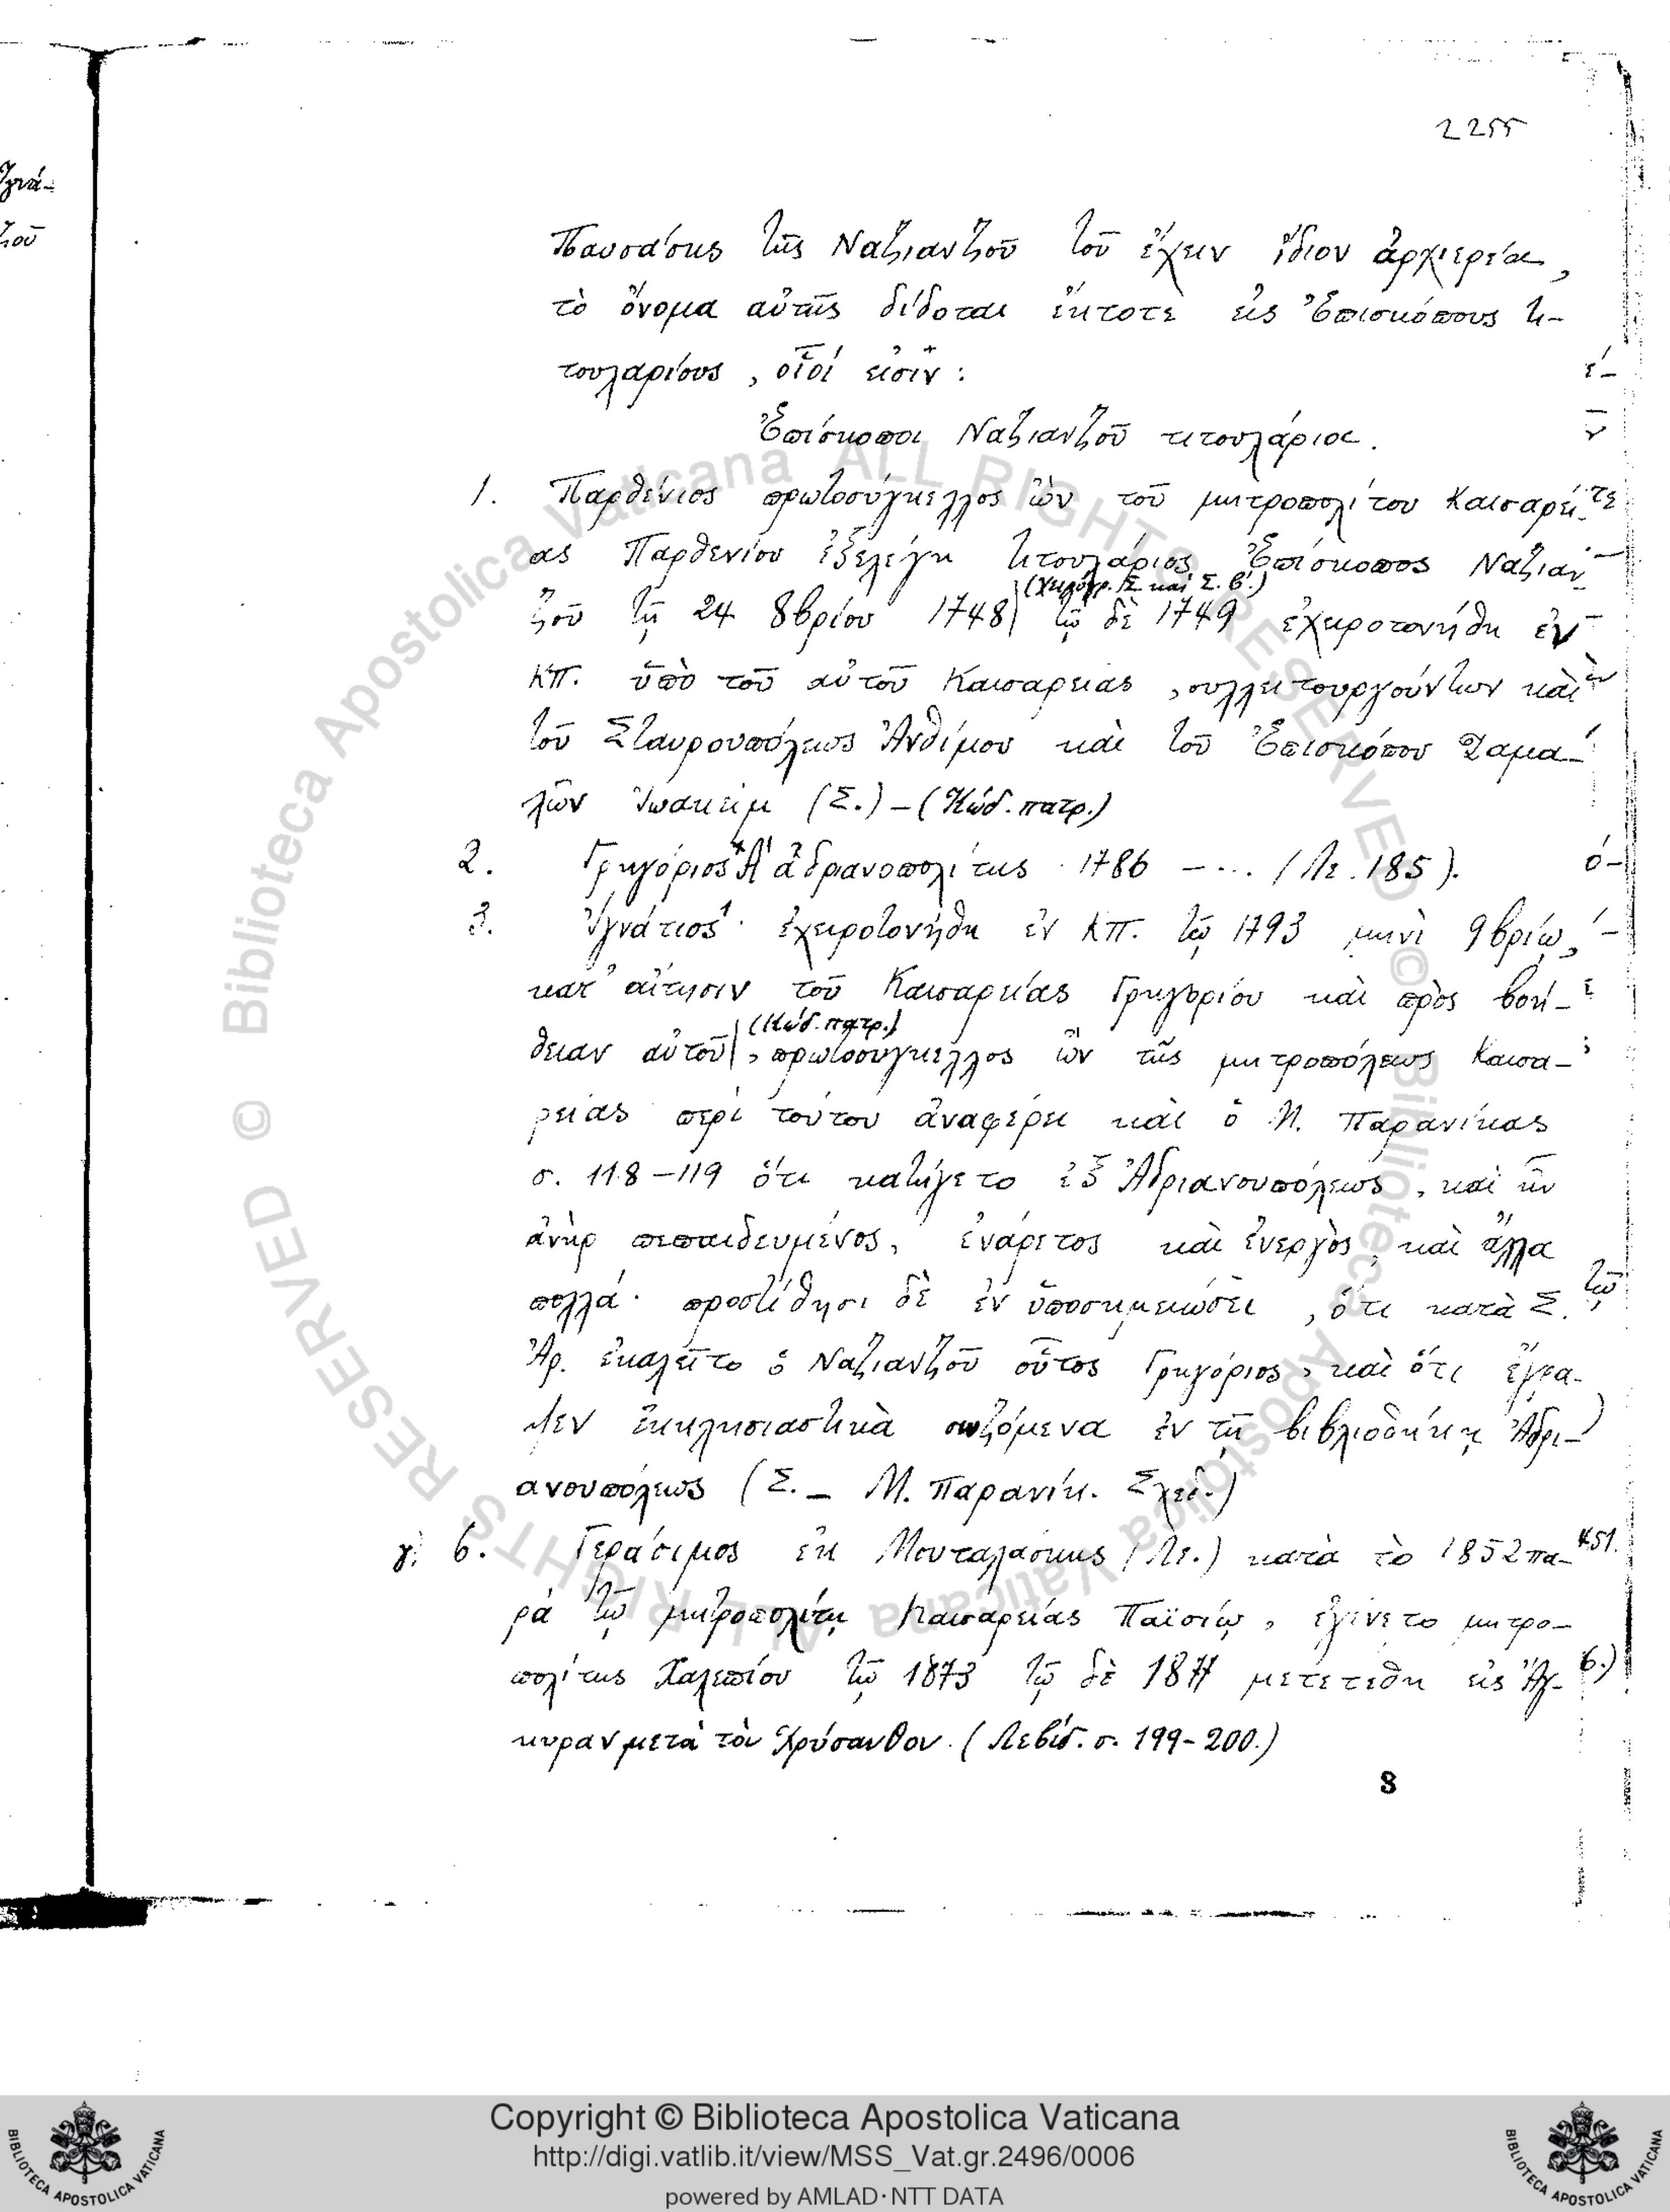 2255
Παυσάσης τῆς Ναζιανζοῦ τοῦ ἔχειν ἴδιον ἀρχιερέα,
τὸ ὄνομα αὐτῆς δίδοται ἔκτοτε εἰς Ἐπισκόπους τι-
τουλαρίους, οἷοί εἰσιν:
Ἐπίσκοποι Ναζιανζοῦ τιτουλάριοι.
1. Παρθένιος πρωτοσύγκελλος ὢν τοῦ μητροπολίτου Καισαρεί-
ας Παρθενίου ἐξελέγη τιτουλάριος Ἐπίσκοπος Ναζιαν
(Χειρόγρ. Σ. καὶ Σ. β΄.)
ζοῦ τῇ 24 8βρίου 1748 τῷ δὲ 1749 ἐχειροτονήθη ἐν
ΚΠ. ὑπὸ τοῦ αὐτοῦ Καισαρείας, συλλειτουργούντων καὶ
τοῦ Σταυρουπόλεως Ἀνθίμου καὶ τοῦ Ἐπισκόπου Δαμα-
λῶν Ἰωακεὶμ (Σ.) – (Κώδ. πατρ.)
2. Γρηγόριος Α΄ ἀδριανοπολίτης 1786 – ... (Λε. 185).
3. Ἰγνάτιος· ἐχειροτονήθη ἐν ΚΠ. τῷ 1793 μηνὶ 9βρίῳ,
κατ' αἴτησιν τοῦ Καισαρείας Γρηγορίου καὶ πρὸς βοή-
(Κώδ. πατρ.)
θειαν αὐτοῦ, πρωτοσύγκελλος ὢν τῆς μητροπόλεως Καισα-
ρείας περὶ τούτου ἀναφέρει καὶ ὁ Μ. Παρανίκας
σ. 118–119 ὅτι κατήγετο ἐξ Ἀδριανουπόλεως, καὶ ἦν
ἀνὴρ πεπαιδευμένος, ἐνάρετος καὶ ἐνεργὸς, καὶ ἄλλα
πολλά· προστίθησι δὲ ἐν ὑποσημειώσει, ὅτι κατὰ Σ.
Ἀρ. ἐκαλεῖτο ὁ Ναζιανζοῦ οὗτος Γρηγόριος, καὶ ὅτι ἔγρα-
ψεν ἐκκλησιαστικὰ σωζόμενα ἐν τῇ βιβλιοθήκῃ Ἀδρι-
ανουπόλεως (Σ. – Μ. Παρανίκ. Σχεδ.)
γ. 6. Γεράσιμος ἐκ Μουταλάσκης (Λε.) κατὰ τὸ 1852 πα-
ρὰ τῷ μητροπολίτῃ Καισαρείας Παϊσίῳ, ἐγίνετο μητρο-
πολίτης Χαλεπίου τῷ 1873 τῷ δὲ 1877 μετετέθη εἰς Ἄγ-
κυραν μετὰ τὸν Χρύσανθον. (Λεβίδ. σ. 199-200.)
8
Copyright © Biblioteca Apostolica Vaticana
http://digi.vatlib.it/view/MSS_Vat.gr.2496/0006
powered by AMLAD·NTT DATA
BIBLIOTECA APOSTOLICA VATICANA
BIBLIOTECA APOSTOLICA VATICANA
© Biblioteca Apostolica Vaticana ALL RIGHTS RESERVED © Biblioteca Apostolica Vaticana ALL RIGHTS RESERVED